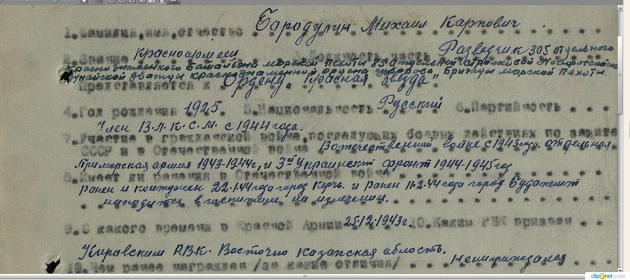 1. Фамилия, имя, отчество Бородулин Михаил Карпович.
2. Звание Красноармеец 3. Должность, часть Разведчик 305 отдельного
Краснознаменного батальона морской пехоты 83 отдельной
Дунайской дважды краснознаменной ордена Суворова, Бригады морской Пехоты.
Представляется к Ордену "Красная Звезда".
4. Год рождения 1925 5. Национальность Русский 6. Партийность
Член В.Л.К.С.М. с 1944 года.
7. Участие в гражданской войне, последующих боевых действиях по защите
СССР и в Отечественной войне В отечественной войне с 1943 года. Отдельная
Приморская армия 1943-1944г, и 3й Украинский фронт 1944-1945 год
8. Имеет ли ранения в Отечественной войне
Ранен и контужен 22.1.44 года город Керчь. и ранен 11.2.44 года город Будапешт
находится в госпитале на излечении.
9. С какого времени в Красной Армии 25.12.1943г. 10. Каким РВК призван
Кировским Р.В.К. Восточно Казахская область.
Чем ранее награжден /за какие отличия/ ненаграждался
clip2net.com